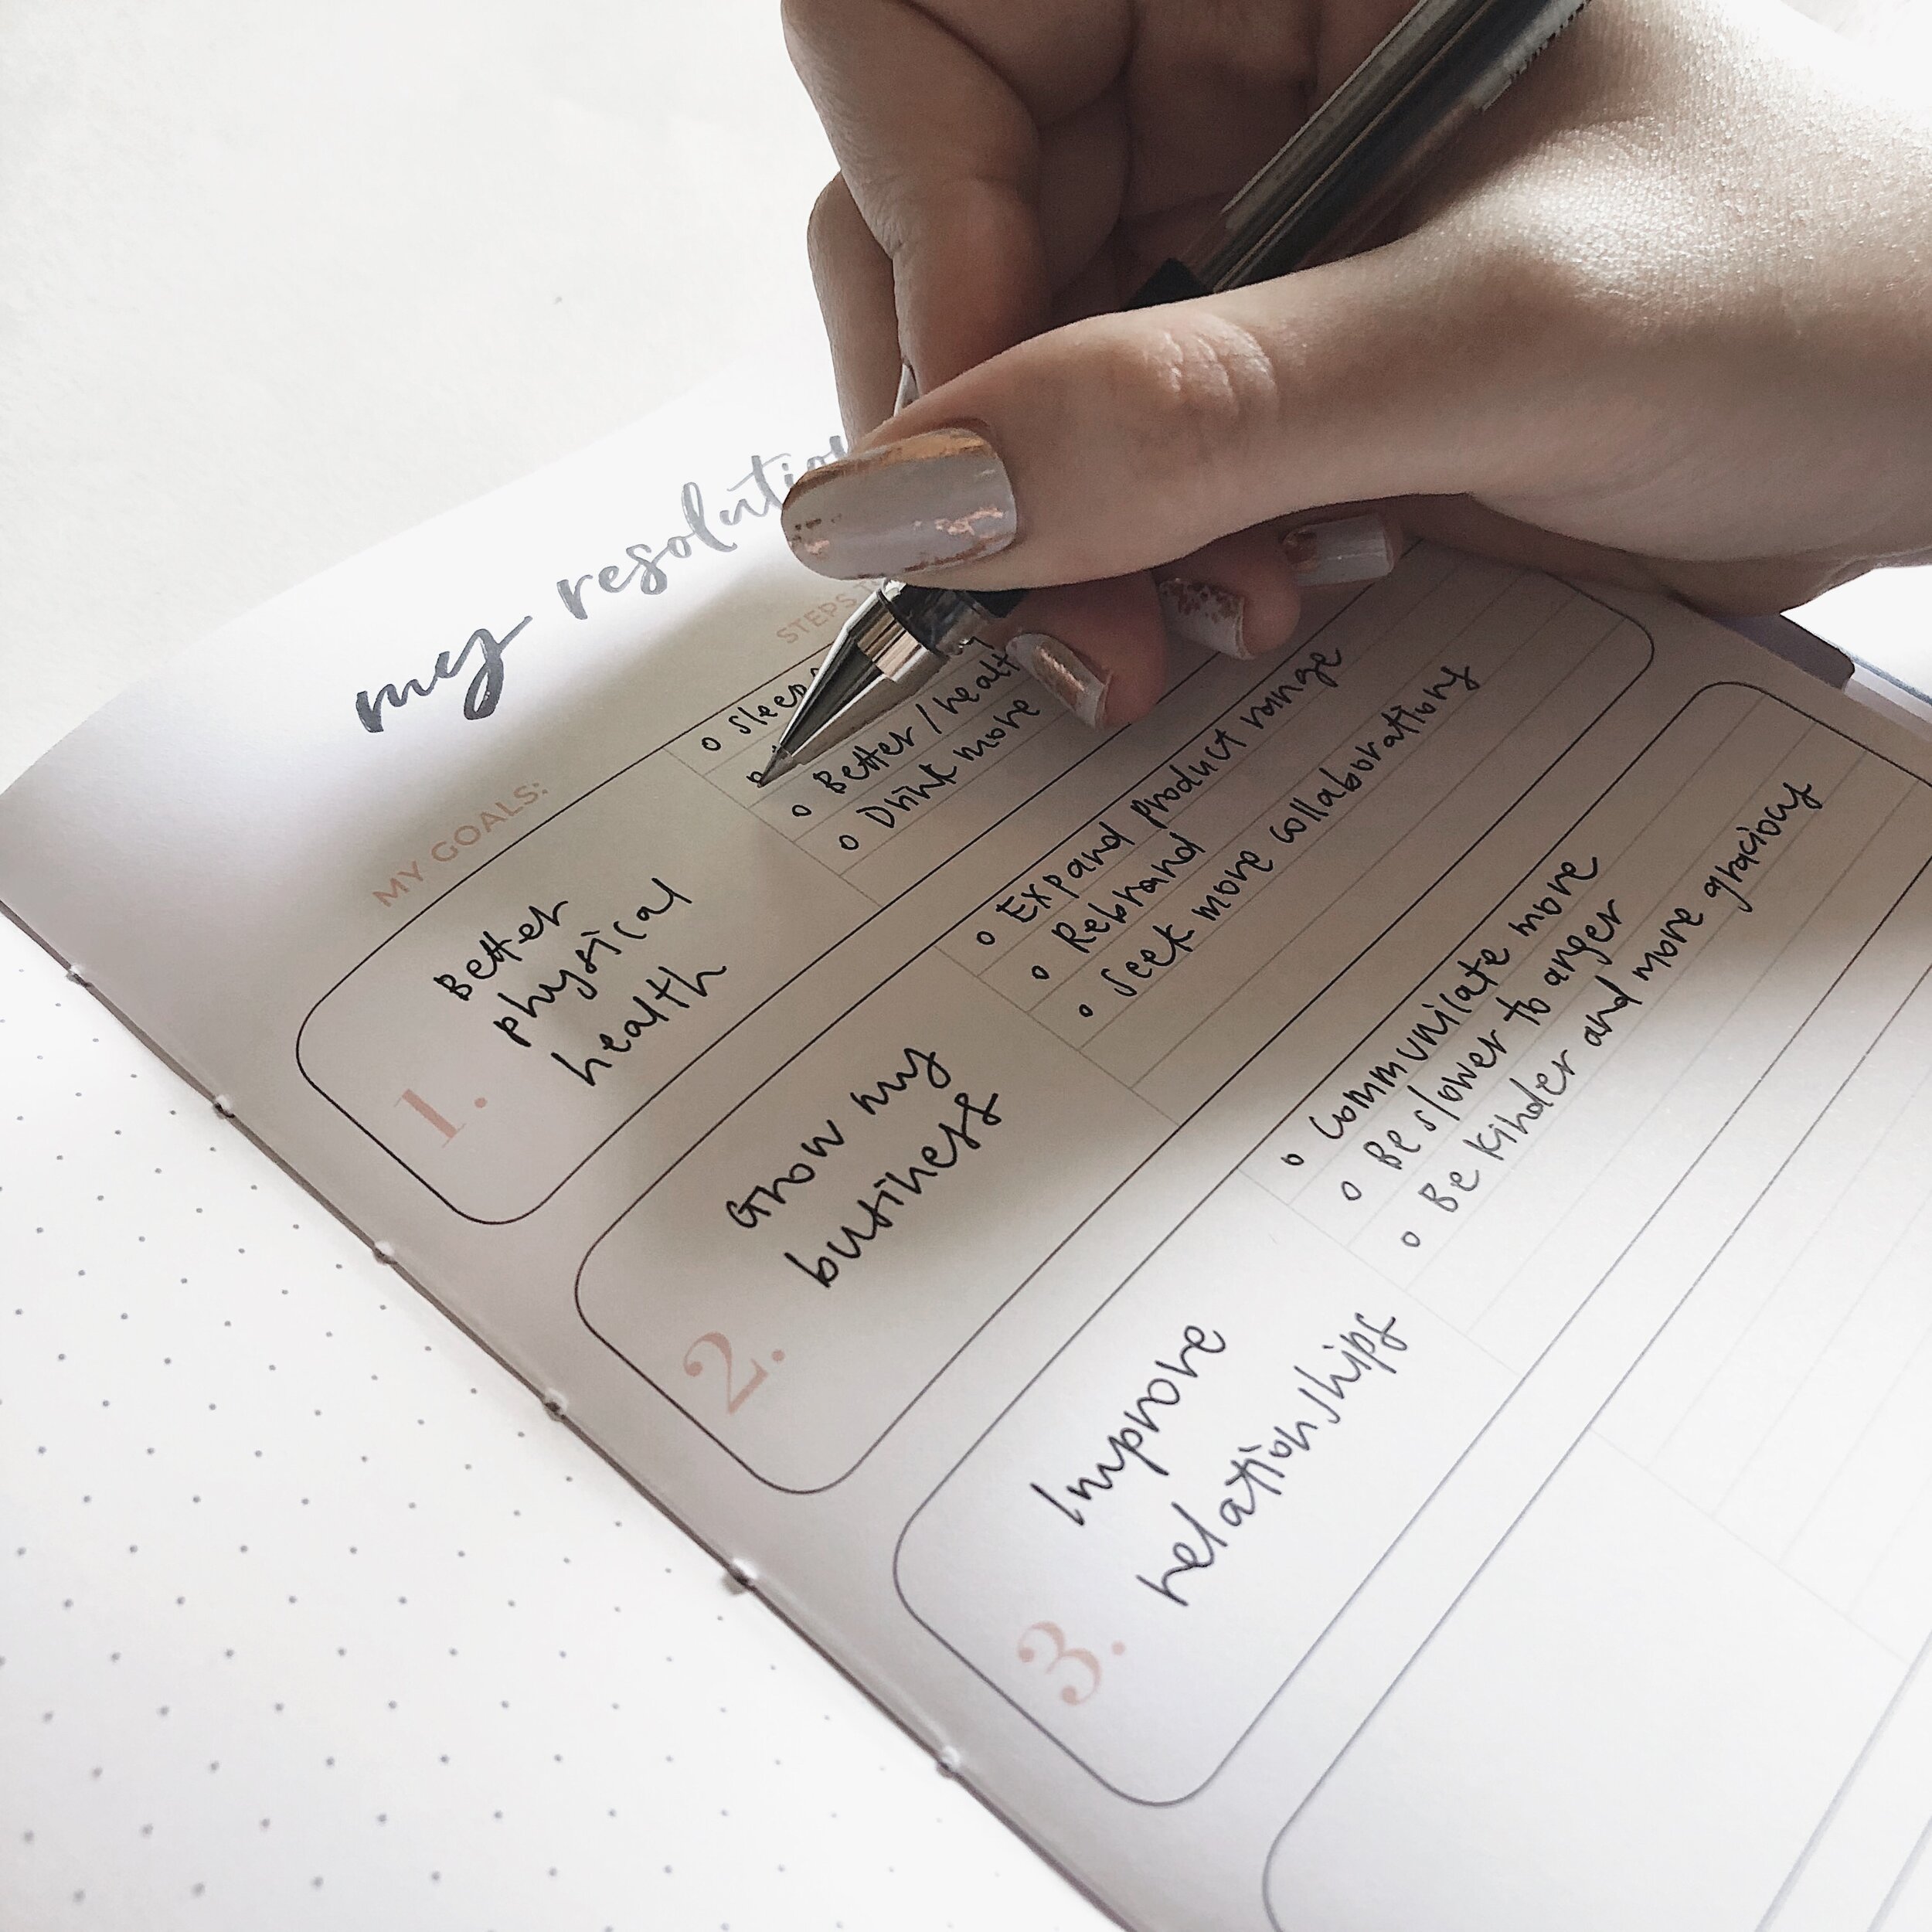 my
MY GOALS:
STEPS
1.
Better
physical
health
o
o Better /
o Drink more
2.
Grow my
business
o Expand product range
o Rebrand
o Seek more collaborations
3.
Improve
relationships
o Communicate more
o Be slower to anger
o Be kinder and more gracious